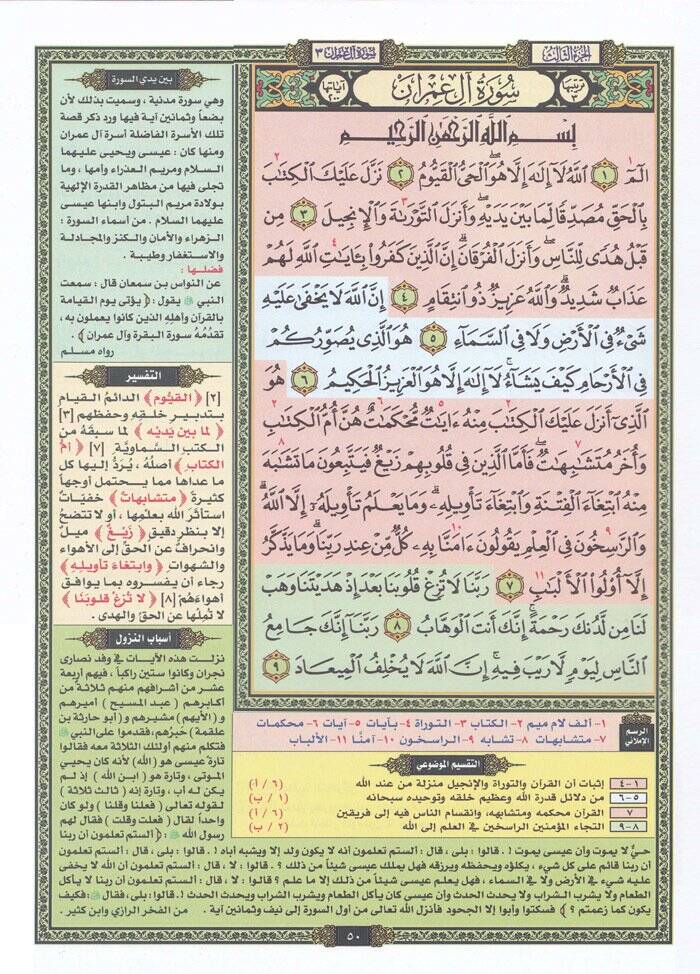 سورة آل عمران ٣
الجزء الثالث
ترتيبها ٣
سورة آل عمران
آياتها ٢٠٠
بسم الله الرحمن الرحيم
الٓمٓ ١ ٱللَّهُ لَآ إِلَٰهَ إِلَّا هُوَ ٱلْحَىُّ ٱلْقَيُّومُ ٢ نَزَّلَ عَلَيْكَ ٱلْكِتَٰبَ
بِٱلْحَقِّ مُصَدِّقًا لِّمَا بَيْنَ يَدَيْهِ وَأَنزَلَ ٱلتَّوْرَىٰةَ وَٱلْإِنجِيلَ ٣ مِن
قَبْلُ هُدًى لِّلنَّاسِ وَأَنزَلَ ٱلْفُرْقَانَ إِنَّ ٱلَّذِينَ كَفَرُوا۟ بِـَٔايَٰتِ ٱللَّهِ لَهُمْ
عَذَابٌ شَدِيدٌ وَٱللَّهُ عَزِيزٌ ذُو ٱنتِقَامٍ ٤ إِنَّ ٱللَّهَ لَا يَخْفَىٰ عَلَيْهِ
شَىْءٌ فِى ٱلْأَرْضِ وَلَا فِى ٱلسَّمَآءِ ٥ هُوَ ٱلَّذِى يُصَوِّرُكُمْ
فِى ٱلْأَرْحَامِ كَيْفَ يَشَآءُ لَآ إِلَٰهَ إِلَّا هُوَ ٱلْعَزِيزُ ٱلْحَكِيمُ ٦ هُوَ
ٱلَّذِىٓ أَنزَلَ عَلَيْكَ ٱلْكِتَٰبَ مِنْهُ ءَايَٰتٌ مُّحْكَمَٰتٌ هُنَّ أُمُّ ٱلْكِتَٰبِ
وَأُخَرُ مُتَشَٰبِهَٰتٌ فَأَمَّا ٱلَّذِينَ فِى قُلُوبِهِمْ زَيْغٌ فَيَتَّبِعُونَ مَا تَشَٰبَهَ
مِنْهُ ٱبْتِغَآءَ ٱلْفِتْنَةِ وَٱبْتِغَآءَ تَأْوِيلِهِۦ وَمَا يَعْلَمُ تَأْوِيلَهُۥٓ إِلَّا ٱللَّهُ
وَٱلرَّٰسِخُونَ فِى ٱلْعِلْمِ يَقُولُونَ ءَامَنَّا بِهِۦ كُلٌّ مِّنْ عِندِ رَبِّنَا وَمَا يَذَّكَّرُ
إِلَّآ أُو۟لُوا۟ ٱلْأَلْبَٰبِ ٧ رَبَّنَا لَا تُزِغْ قُلُوبَنَا بَعْدَ إِذْ هَدَيْتَنَا وَهَبْ
لَنَا مِن لَّدُنكَ رَحْمَةً إِنَّكَ أَنتَ ٱلْوَهَّابُ ٨ رَبَّنَآ إِنَّكَ جَامِعُ
ٱلنَّاسِ لِيَوْمٍ لَّا رَيْبَ فِيهِ إِنَّ ٱللَّهَ لَا يُخْلِفُ ٱلْمِيعَادَ ٩
الرسم الإملائي
١- ألف لام ميم ٢- الكتاب ٣- التوراة ٤- بآيات ٥- آيات ٦- محكمات
٧- متشابهات ٨- تشابه ٩- الراسخون ١٠- آمنّا ١١- الألباب
التقسيم الموضوعي
١-٤ إثبات أن القرآن والتوراة والإنجيل منزلة من عند الله (٦ / أ)
٥-٦ من دلائل قدرة الله وعظيم خلقه وتوحيده سبحانه (١ / ب)
٧ القرآن محكمه ومتشابهه، وانقسام الناس فيه إلى فريقين (٦ / أ)
٨-٩ التجاء المؤمنين الراسخين في العلم إلى الله (٢ / ب)
بين يدي السورة
وهي سورة مدنية ، وسميت بذلك لأن
بضعاً وثمانين آية فيها ورد ذكر قصة
تلك الأسرة الفاضلة أسرة آل عمران
ومنها كان : عيسى ويحيى عليهما
السلام ومريم العذراء وأمها ، وما
تجلى فيها من مظاهر القدرة الإلهية
بولادة مريم البتول وابنها عيسى
عليهما السلام . من أسماء السورة :
الزهراء والأمان والكنز والمجادلة
والاستغفار وطيبة .
فضلها :
عن النواس بن سمعان قال : سمعت
النبي ﷺ يقول : ﴿ يؤتى يوم القيامة
بالقرآن وأهله الذين كانوا يعملون به ،
تقدُمُه سورة البقرة وآل عمران ﴾ .
رواه مسلم
التفسير
[٢] ﴿ القيّوم ﴾ الدائمُ القيام
بتدبير خلقه وحفظهم [٣]
﴿ لما بين يديه ﴾ لما سبقَهُ من
الكتب السماويّة. [٧] ﴿ أم
الكتاب ﴾ أصلُهُ ، يُرَدُّ إليها كل
ما عداها مما يحتمل أوجهاً
كثيرة ﴿ متشابهات ﴾ خفيّات
استأثر الله بعلمها ، أو لا تتضحُ
إلا بنظرٍ دقيق ﴿ زيغ ﴾ ميلٌ
وانحرافٌ عن الحقّ إلى الأهواء
والشهوات ﴿ وابتغاء تأويله ﴾
رجاء أن يفسروه بما يوافق
أهواءهُمْ [٨] ﴿ لا تُزغ قلوبنا ﴾
لا تُمِلْها عن الحقّ والهدى .
أسباب النزول
نزلت هذه الآيات في وفد نصارى
نجران وكانوا ستين راكباً ، فيهم أربعة
عشر من أشرافهم منهم ثلاثة من
أكابرهم ( عبد المسيح ) أميرهم
و ( الأيهم ) مشيرهم و ( أبو حارثة بن
علقمة ) حَبْرُهم، فقدموا على النبي ﷺ
فتكلم منهم أولئك الثلاثة معه فقالوا
تارة عيسى هو (الله) لأنه كان يحيي
الموتى ، وتارة هو ( ابن الله ) إذ لم
يكن له أب ، وتارة إنه ( ثالث ثلاثة )
لقوله تعالى ( فعلنا وقلنا ) ولو كان
واحداً لقال ( فعلت وقلت ) فقال لهم
رسول الله ﷺ : ﴿ ألستم تعلمون أن ربنا
حيٌّ لا يموت وأن عيسى يموت !. قالوا : بلى ، قال : ألستم تعلمون أنه لا يكون ولد إلا ويشبه أباه !. قالوا : بلى ، قال : ألستم تعلمون
أن ربنا قائم على كل شيء ، يكلؤه ويحفظه ويرزقه فهل يملك عيسى شيئاً من ذلك ؟. قالوا : لا ، قال : ألستم تعلمون أن الله لا يخفى
عليه شيء في الأرض ولا في السماء ، فهل يعلم عيسى شيئاً من ذلك إلا ما علم ؟ قالوا : لا ، قال : ألستم تعلمون أن ربنا لا يأكل
الطعام ولا يشرب الشراب ولا يحدث الحدث وأن عيسى كان يأكل الطعام ويشرب الشراب ويحدث الحدث !. قالوا: بلى، فقال ﷺ: فكيف
يكون كما زعمتم ؟ ﴾ فسكتوا وأبوا إلا الجحود فأنزل الله تعالى من أول السورة إلى نيف وثمانين آية . من الفخر الرازي وابن كثير .
٥٠